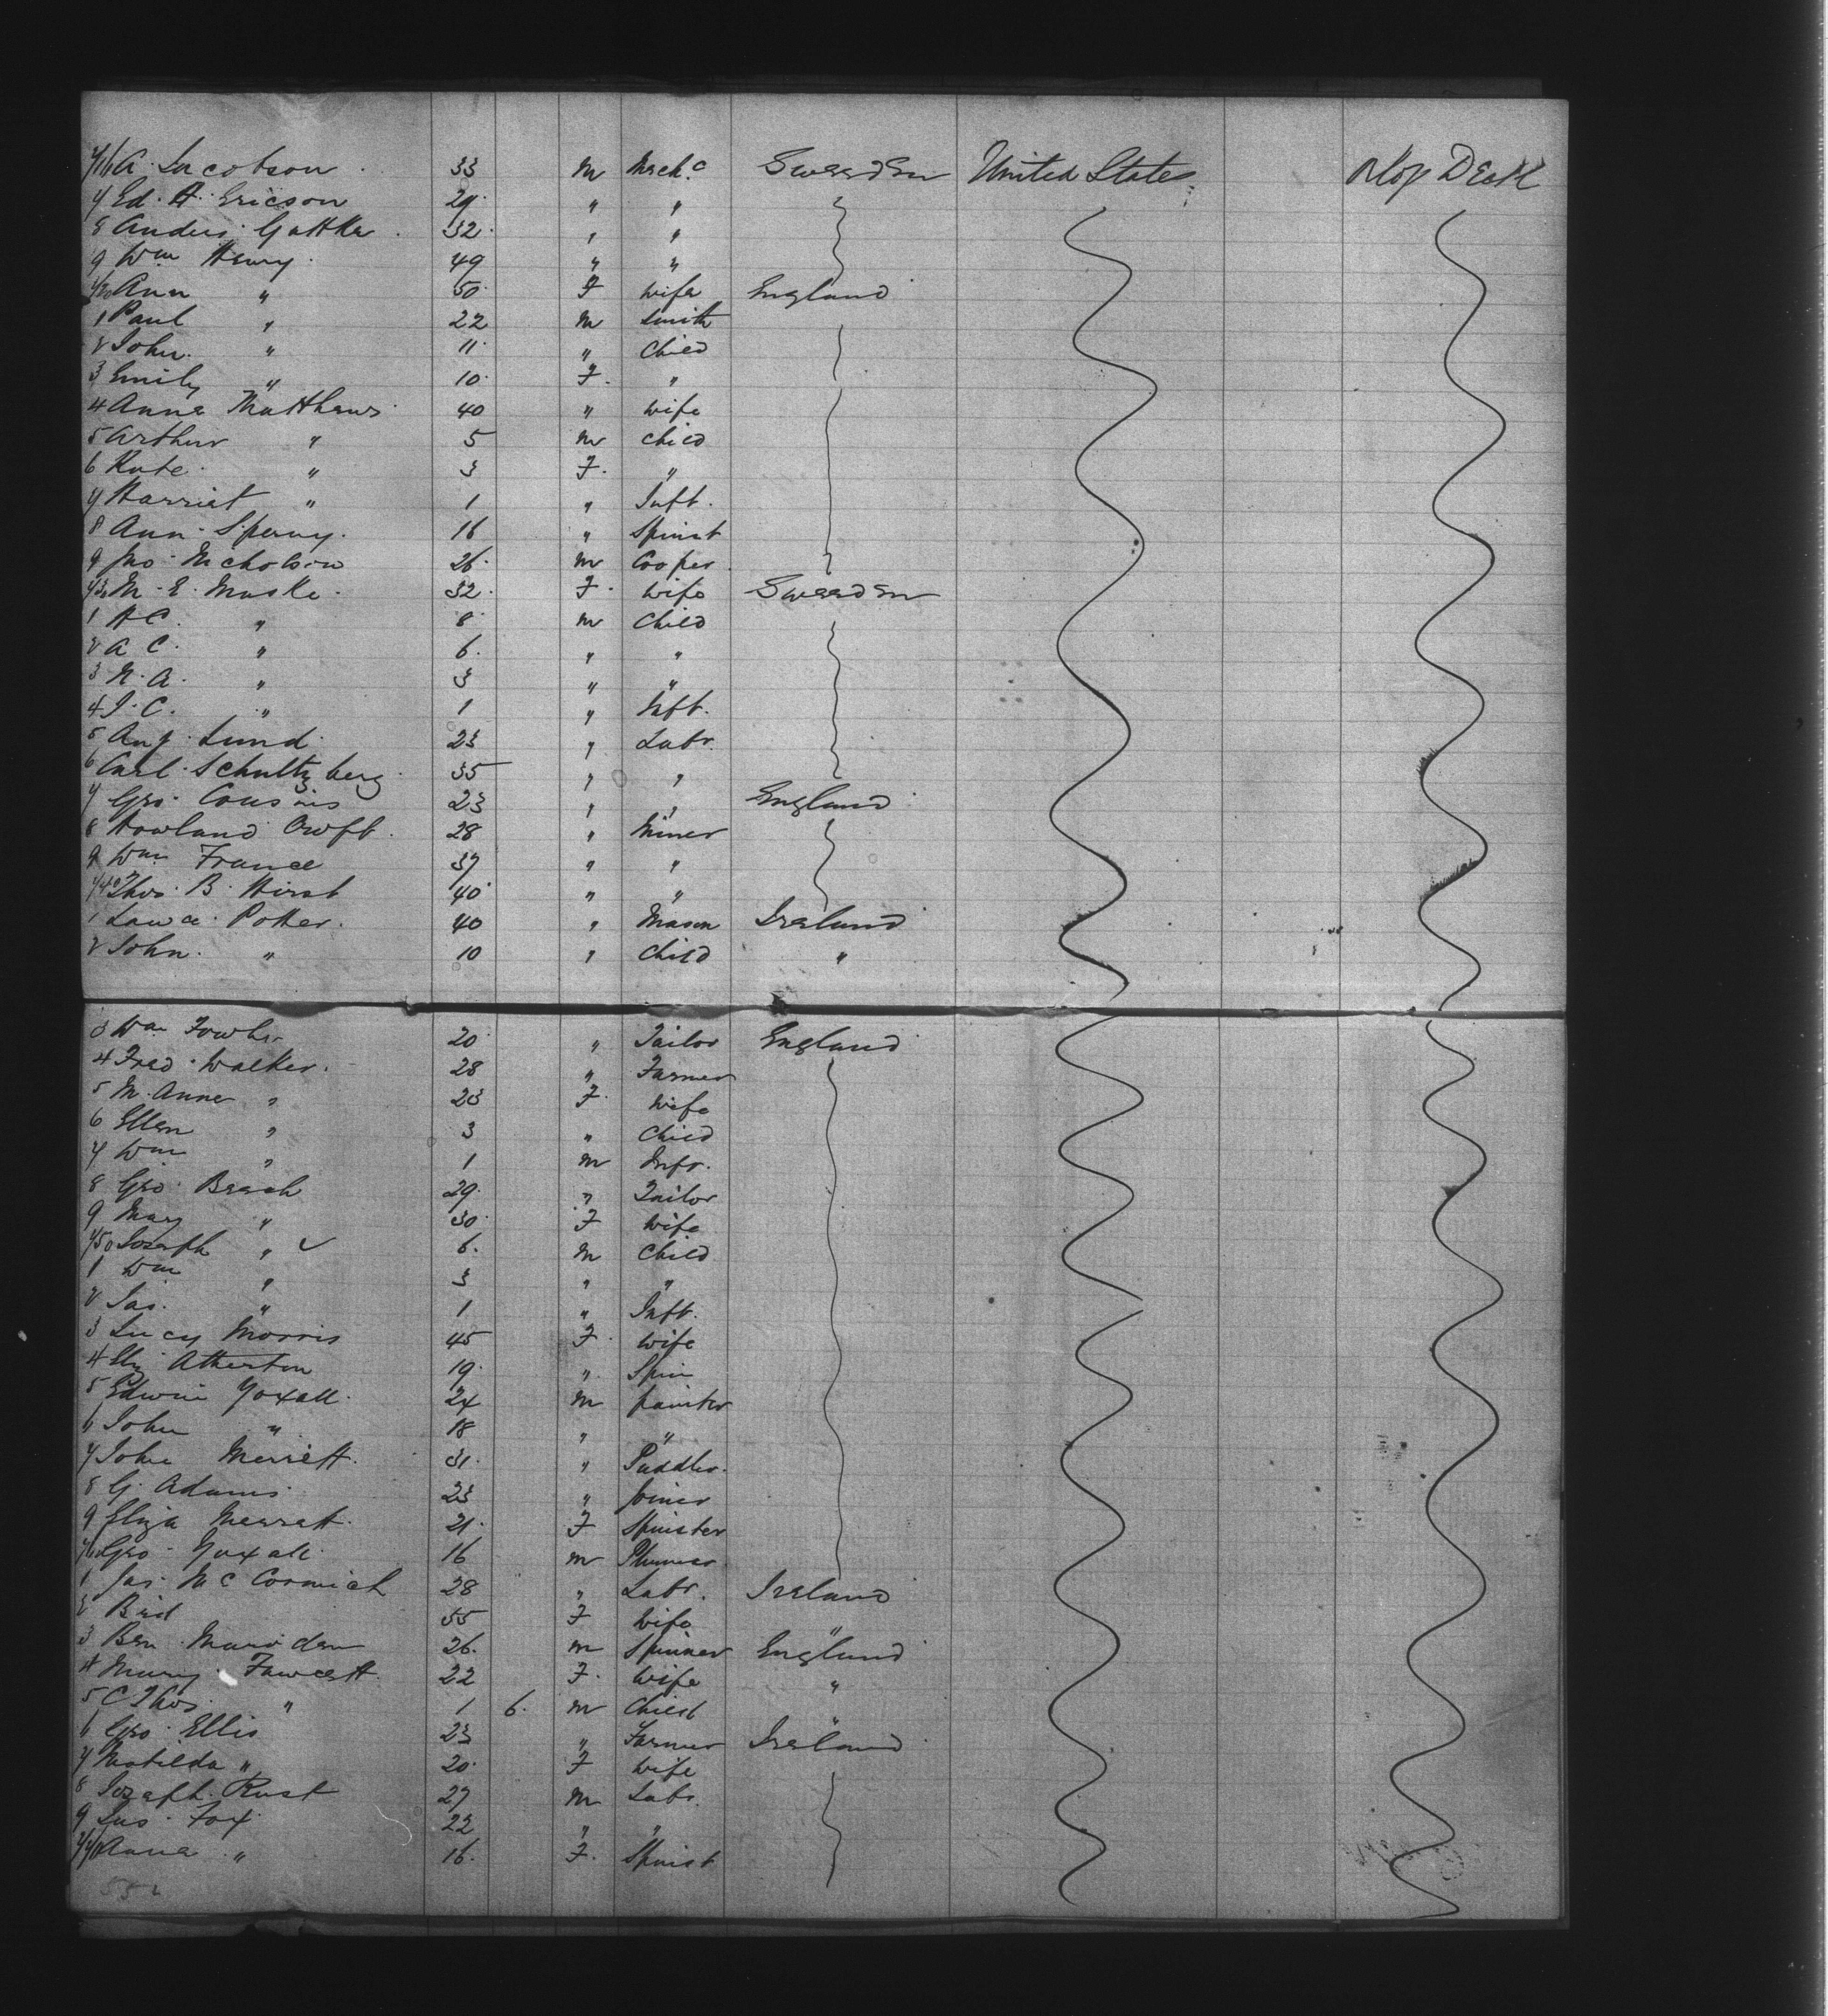 716 A. Jacobson 33 M Mech.c Sweeden United States Stop Deck
7 Ed. A. Ericson 29 " "
8 Anders Gattka 32 " "
9 Wm Henry 49 " "
720 Ann " 50 F Wife England
1 Paul " 22 M Smith
2 John " 11 " Child
3 Emily " 10 F "
4 Anna Matthews 40 " Wife
5 Arthur " 5 M Child
6 Kate " 3 F "
7 Harriet " 1 " Inft.
8 Ann 16 " Spinst
9 Jno Nicholson 26 M Cooper
730 M. E. Muske 32 F Wife Sweeden
1 A C. " 8 M Child
2 A C. " 6 " "
3 N. A. " 3 " "
4 J. C. " 1 " Inft.
5 Aug. Lund 23 " Labr.
6 Carl Schultzberg 35 " "
7 Geo. Cousins 23 " " England
8 Howland 28 " Miner
9 Wm France 37 " "
740 Thos. B. Hirst 40 " "
1 Lawce Potter 40 " Mason Ireland
2 John " 10 " Child "
3 Wm Fowler 20 " Tailor England
4 Fred Walker 28 " Farmer
5 M. Anne " 23 F Wife
6 Ellen " 3 " Child
7 Wm " 1 M Infr.
8 Geo Beach 29 " Tailor
9 Mary " 30 F Wife
750 Joseph " ✓ 6 M Child
1 Wm " 3 " "
2 Jas. " 1 " Inft.
3 Lucy Morris 45 F Wife
4 Eliz Atherton 19 " Spin
5 Edwin Yoxall 24 M painter
6 John " 18 " "
7 John Merrett 31 " Puddler
8 G. Adams 23 " Joiner
9 Eliza Merrett 21 F Spinster
760 Geo Yoxall 16 M
1 Jas. McCormick 28 " Labr. Ireland
2 Brid 55 F Wife "
3 Ben Marsden 26 M Spinner England
4 Mary Fawcett 22 F Wife "
5 C Thos. " 1 6 M Child "
6 Geo Ellis 23 " Farmer Ireland
7 Matilda " 20 F Wife
8 Joseph Rust 27 M Labr.
9 Jas. Fox 22 " "
770 Anna " 16 F Spinst